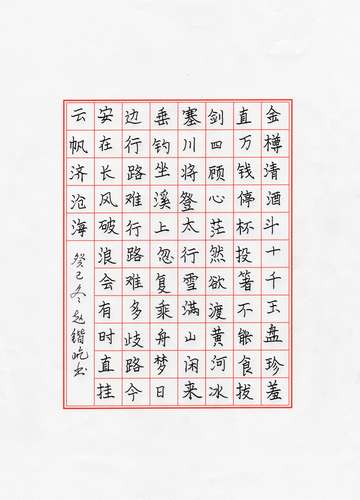 金樽清酒斗十千玉盘珍羞
直万钱停杯投箸不能食拔
剑四顾心茫然欲渡黄河冰
塞川将登太行雪满山闲来
垂钓坐溪上忽复乘舟梦日
边行路难行路难多歧路今
安在长风破浪会有时直挂
云帆济沧海
癸巳冬赵锴书